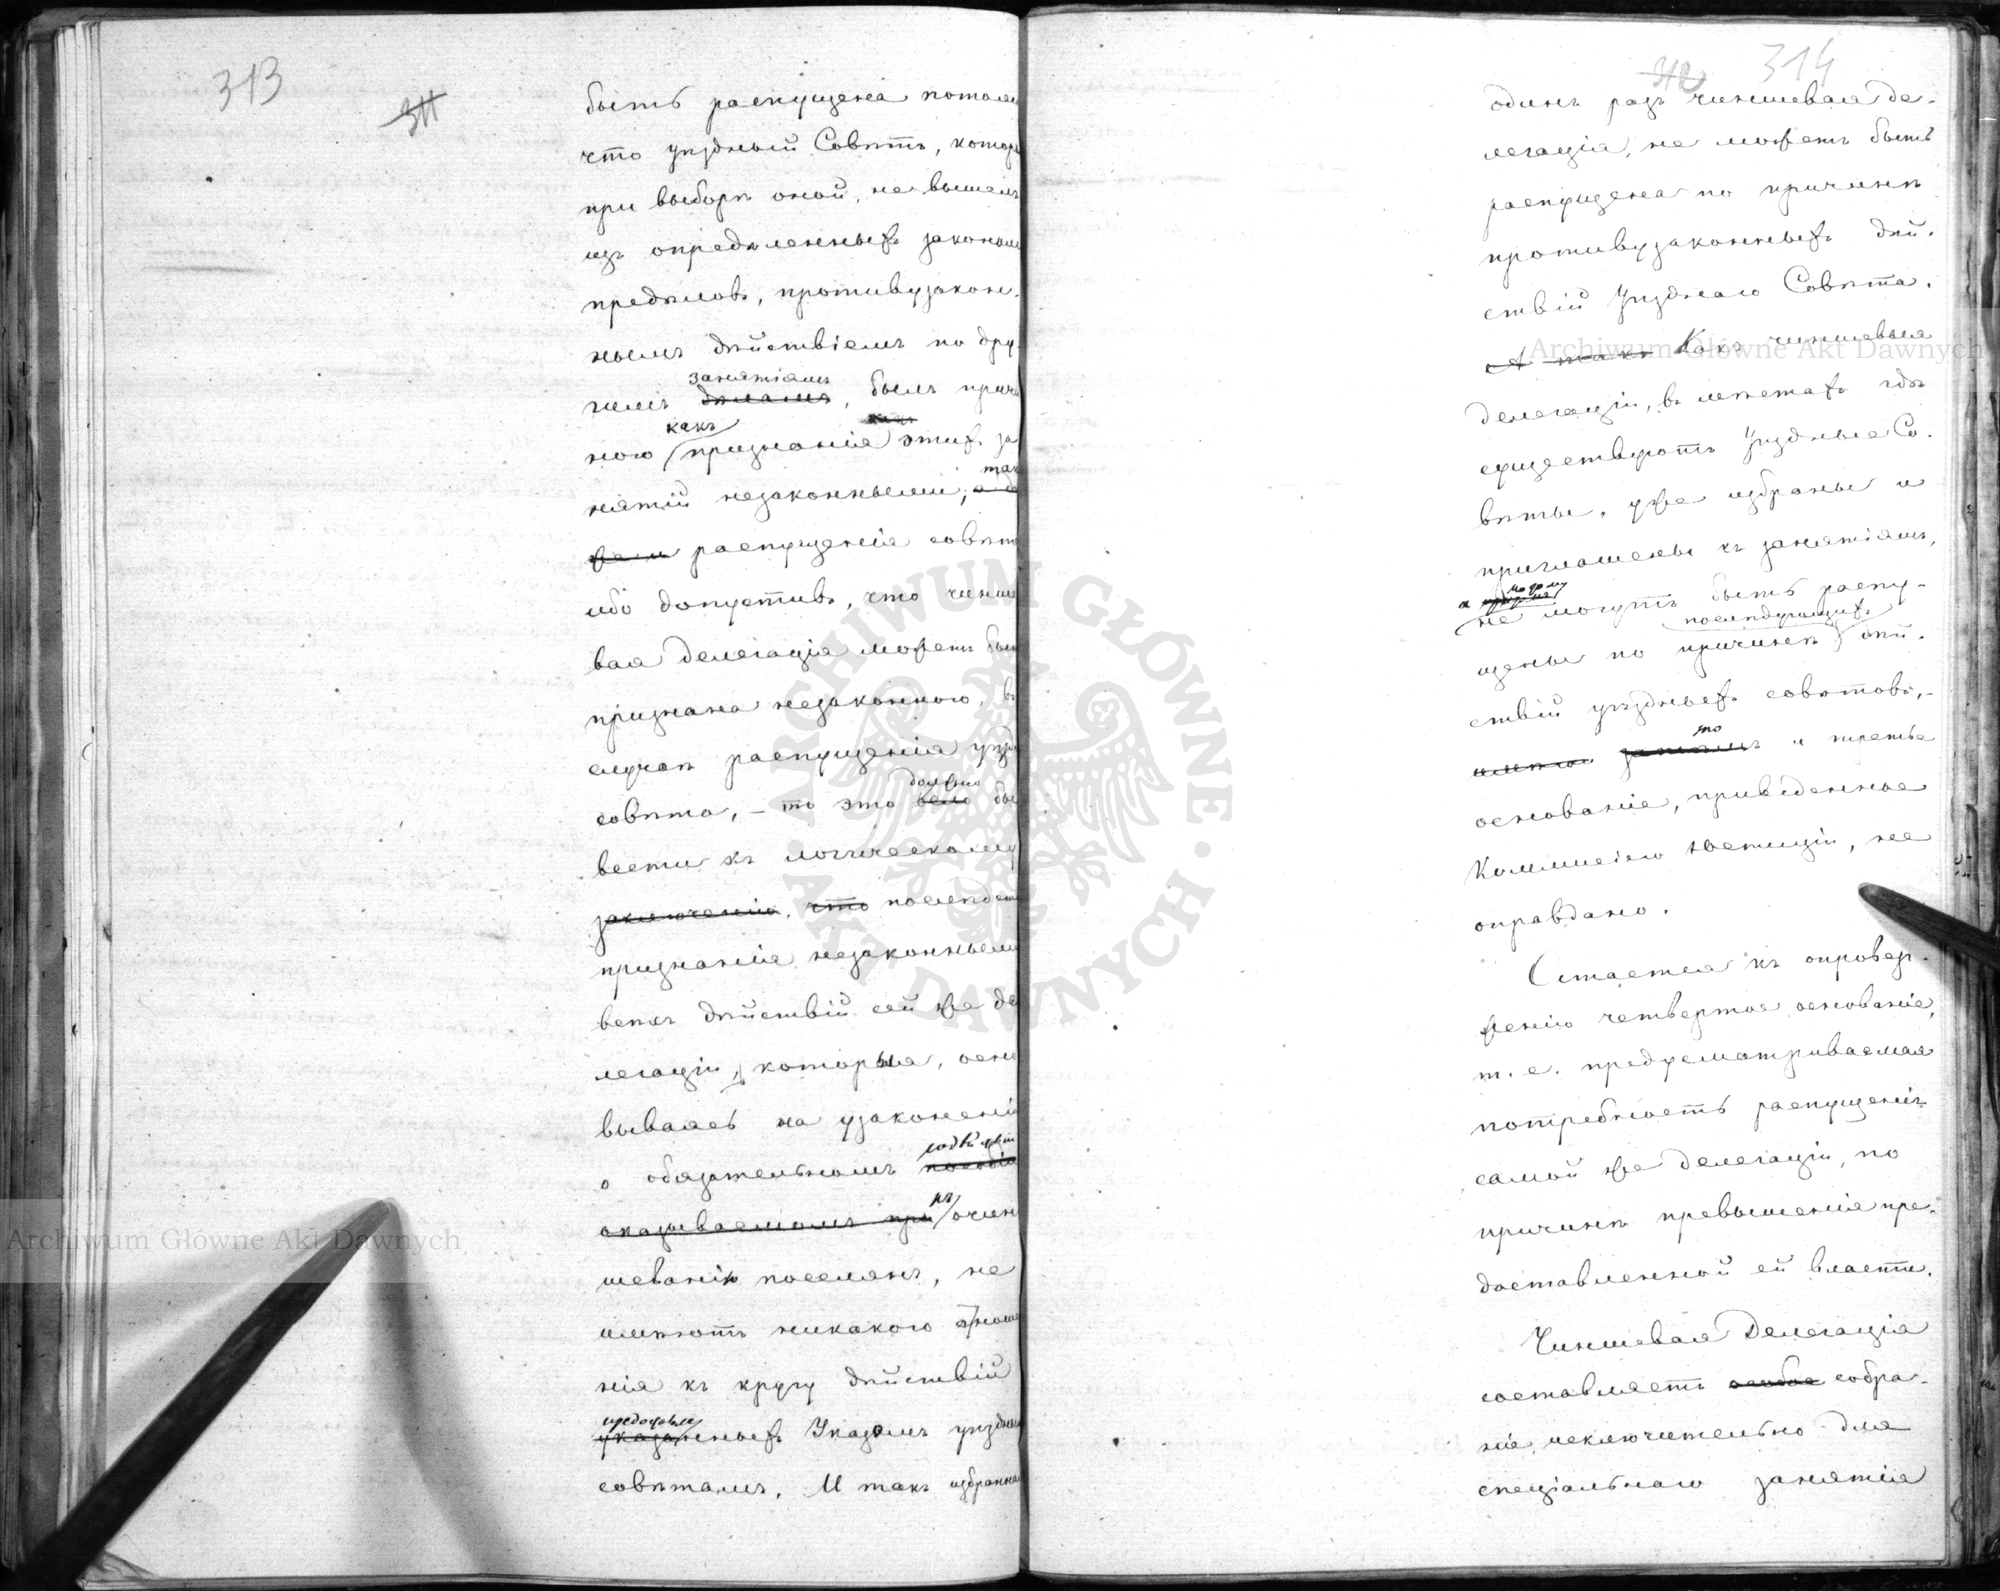 313
311
быть распущена потому
что уѣздный Совѣтъ, котор
при выборѣ оной, не вышелъ
изъ опредѣленныхъ закономъ
предѣловъ, противузакон-
нымъ дѣйствіемъ по дру-
занятіямъ
гимъ дѣламъ, былъ причи
какъ
ною признанія этихъ за
так
нятій незаконными,
распущенія совѣт
ибо допустивъ, что чинше
вая делегація можетъ быт
признана незаконною, въ
случаѣ распущенія уѣзд
должно
совѣта, – то это вело бы
вести къ логическому
заключенію, что послѣдст
признанія незаконными
всѣхъ дѣйствій сей же де
легаціи, которыя, осно
вываясь на узаконені
содѣйствіи
о обязательномъ пособіи
къ
оказываемомъ при очин
шеванію поселянъ, не
имѣютъ никакого отноше
нія къ кругу дѣйствій
предоставле
указанныхъ Указомъ уѣздны
совѣтамъ. И такъ избранная
314
312
одинъ разъ чиншевая де-
легація, не можетъ быть
распущена по причинѣ
противузаконныхъ дѣй-
ствій Уѣзднаго Совѣта.
А такъ Какъ чиншевыя
делегаціи, въ мѣстахъ гдѣ
существуютъ Уѣздные Со-
вѣты, уже избраны и
приглашены къ занятіямъ,
а потому
не могутъ быть распу-
послѣдующихъ
щены по причинѣ дѣй-
ствій уѣздныхъ совѣтовъ,–
то
затѣмъ и третье
основаніе, приведенное
Коммисіею Юстиціи, не
оправдано.
Остается къ опровер-
женію четвертое основаніе,
т. е. предусматриваемая
потребность распущенія
самой же делегаціи, по
причинѣ превышенія пре-
доставленной ей власти.
Чиншевая Делегація
составляетъ особое собра-
ніе, исключительно для
спеціальнаго занятія
Archiwum Główne Akt Dawnych
Archiwum Główne Akt Dawnych
ARCHIWUM GŁÓWNE AKT DAWNYCH